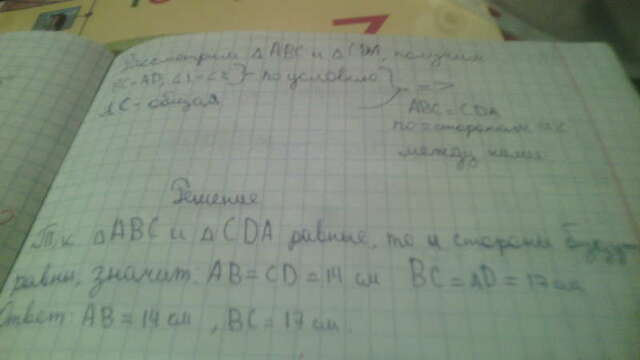 Рассмотрим △ABC и △CDA, получим
BC=AD, ∠1=∠2}- по условию} =>
AC - общая
ABC=CDA
по 2 сторонам и ∠
между ними
Решение
Т.к △ABC и △CDA равные, то и стороны будут
равны, значит: AB=CD=14 см BC=AD=17 см
Ответ: AB=14 см, BC=17 см.